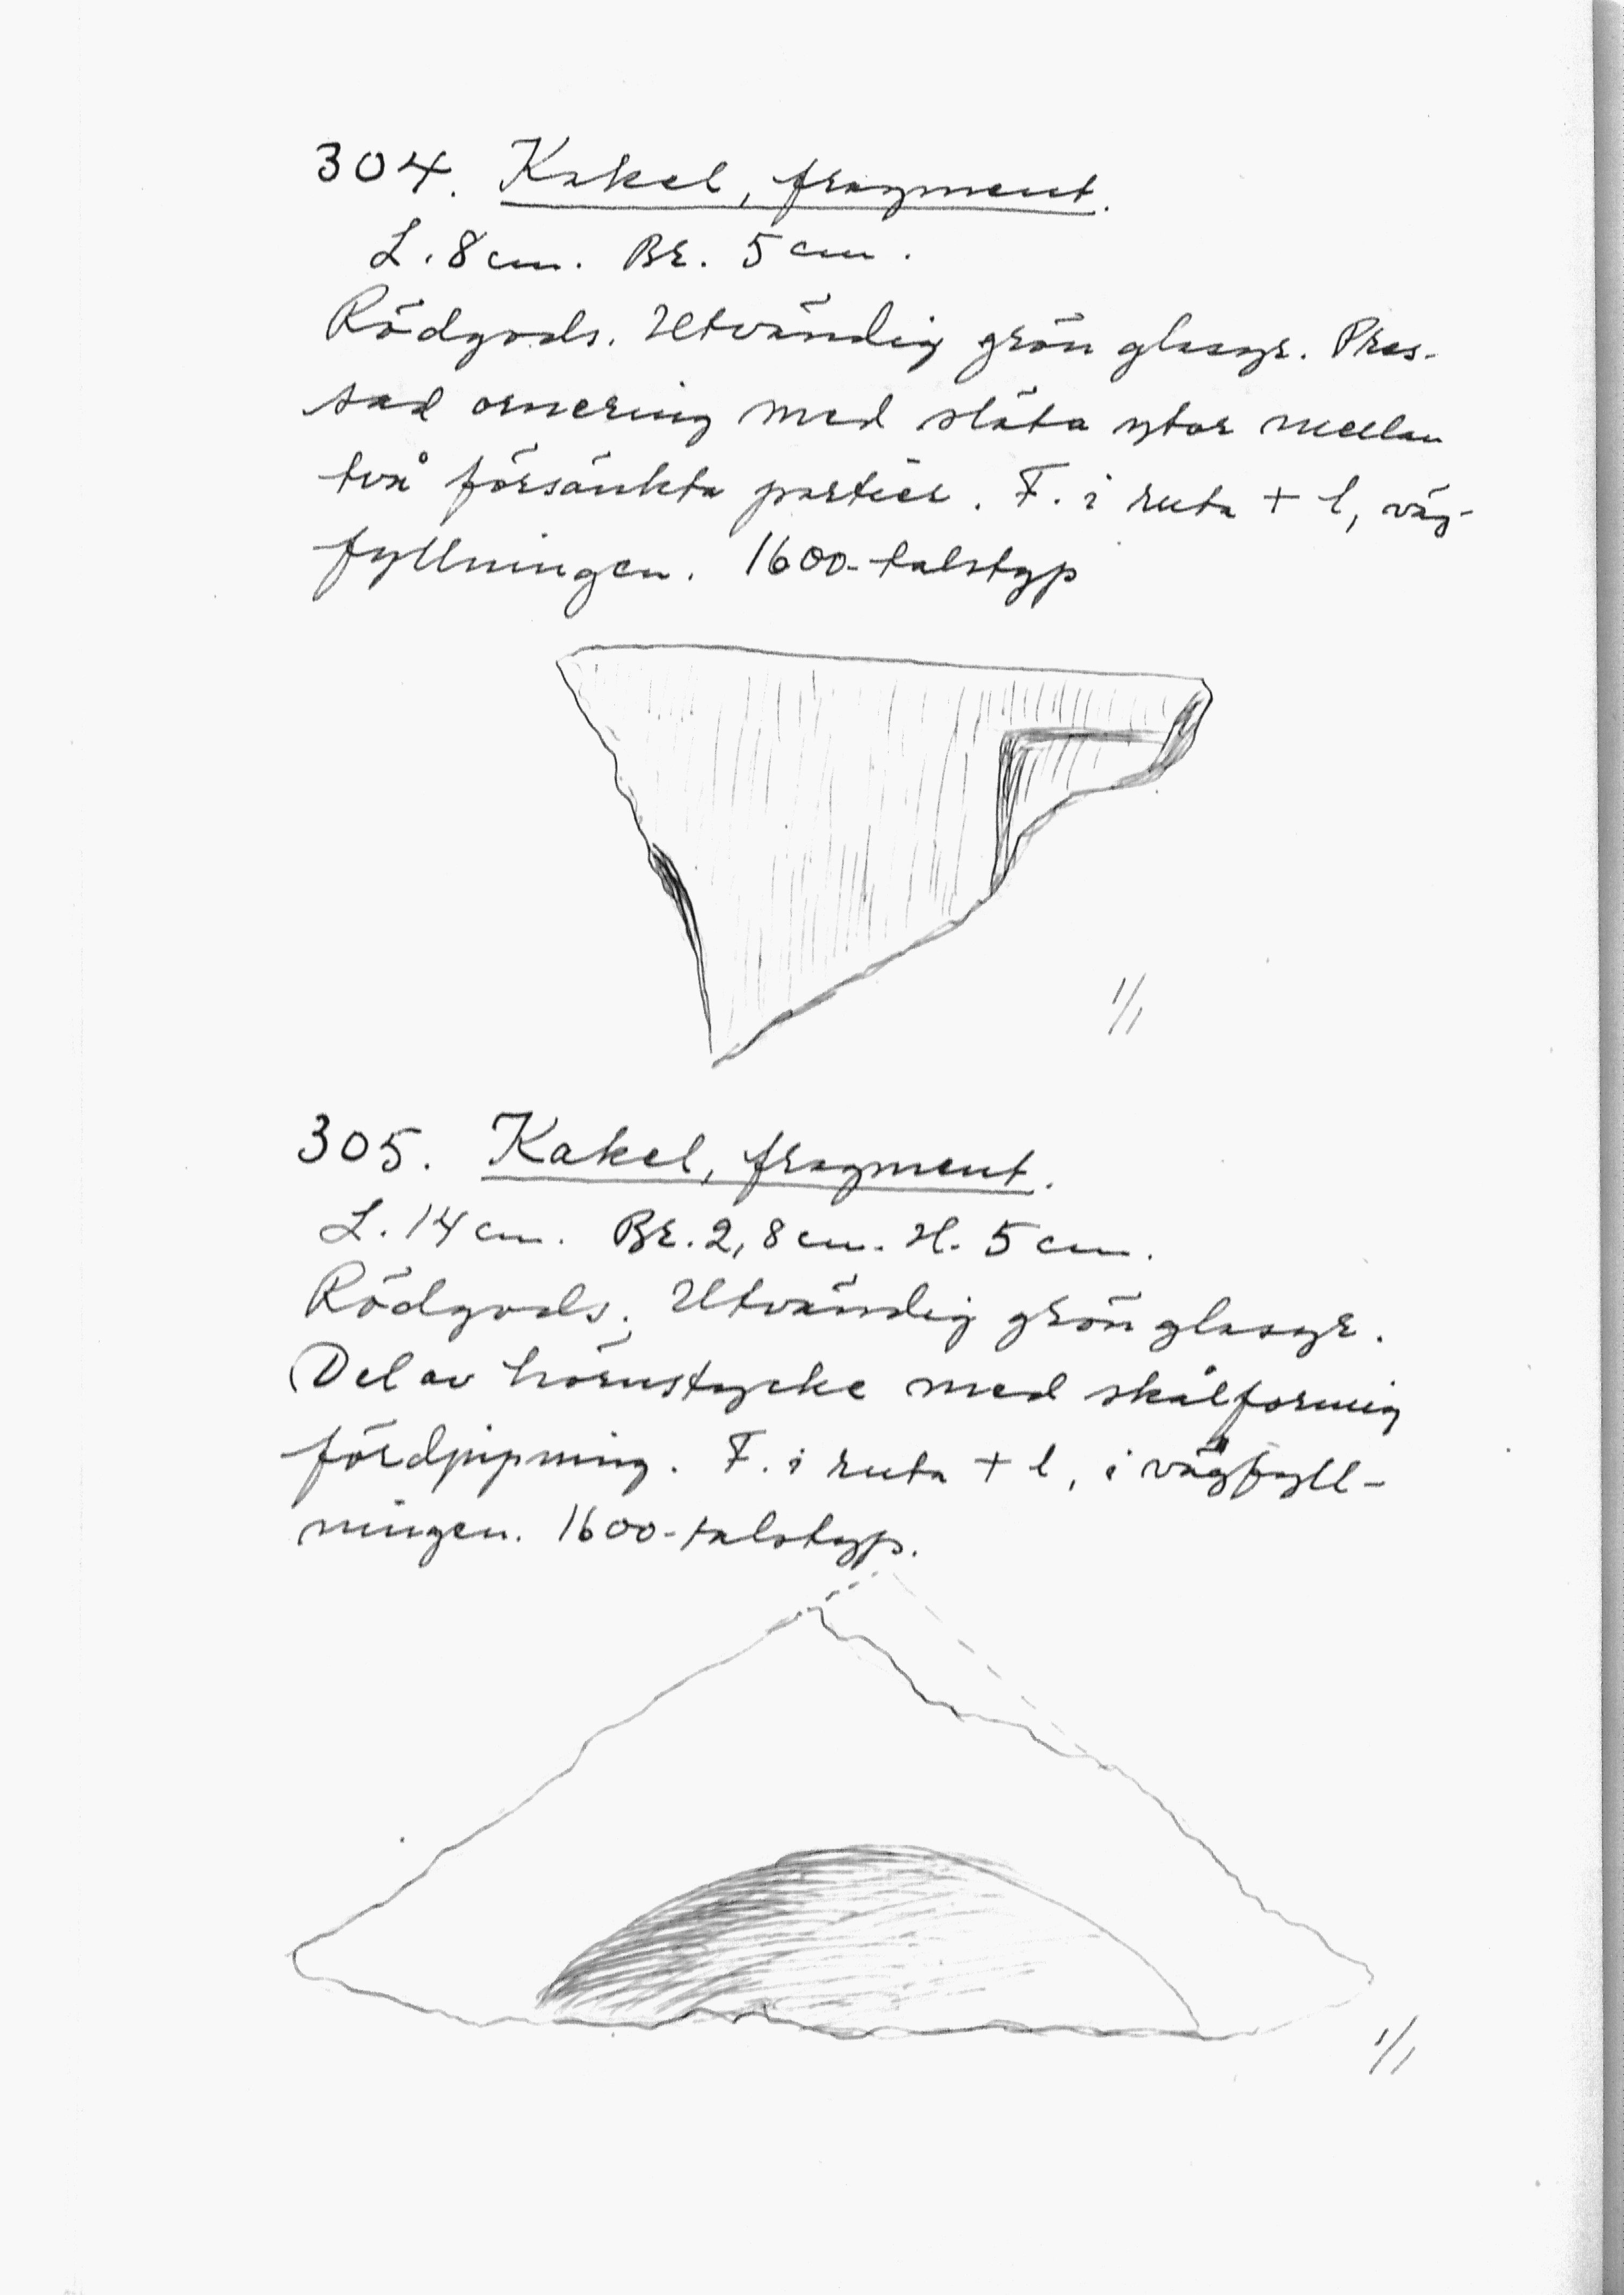 304. Kakel, fragment.
L. 8 cm. Br. 5 cm.
Rödgods. Utvändig grön glasyr. Pres-
sad ornering med släta ytor mellan
två försänkta partier. F. i ruta + l, väg-
fyllningen. 1600-talstyp
1/1
305. Kakel, fragment.
L. 14 cm. Br. 2,8 cm. H. 5 cm.
Rödgods. Utvändig grön glasyr.
Del av hörnstycke med skålformig
fördjupning. F. i ruta + l, i vägfyll-
ningen. 1600-talstyp.
1/1